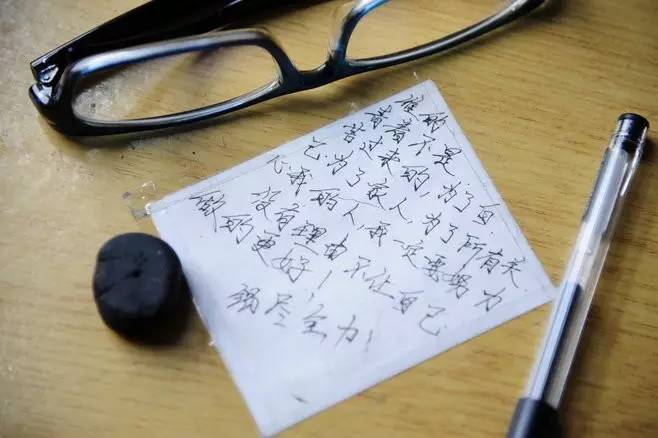 谁的
青春不是
苦过来的,为了自
己,为了家人,为了所有关
心我的人,我一定要努力
没有理由不让自己
做的更好!
竭尽全力!